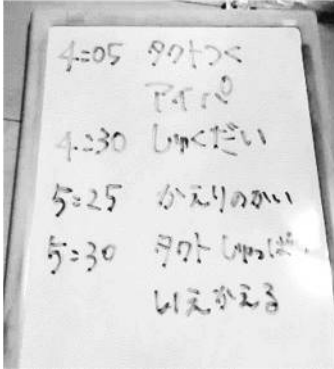 4:05 タクトつく
アイパ゜
4:30 しゅくだい
5:25 かえりのかい
5:30 タクトしゅっぱつ
いえかえる